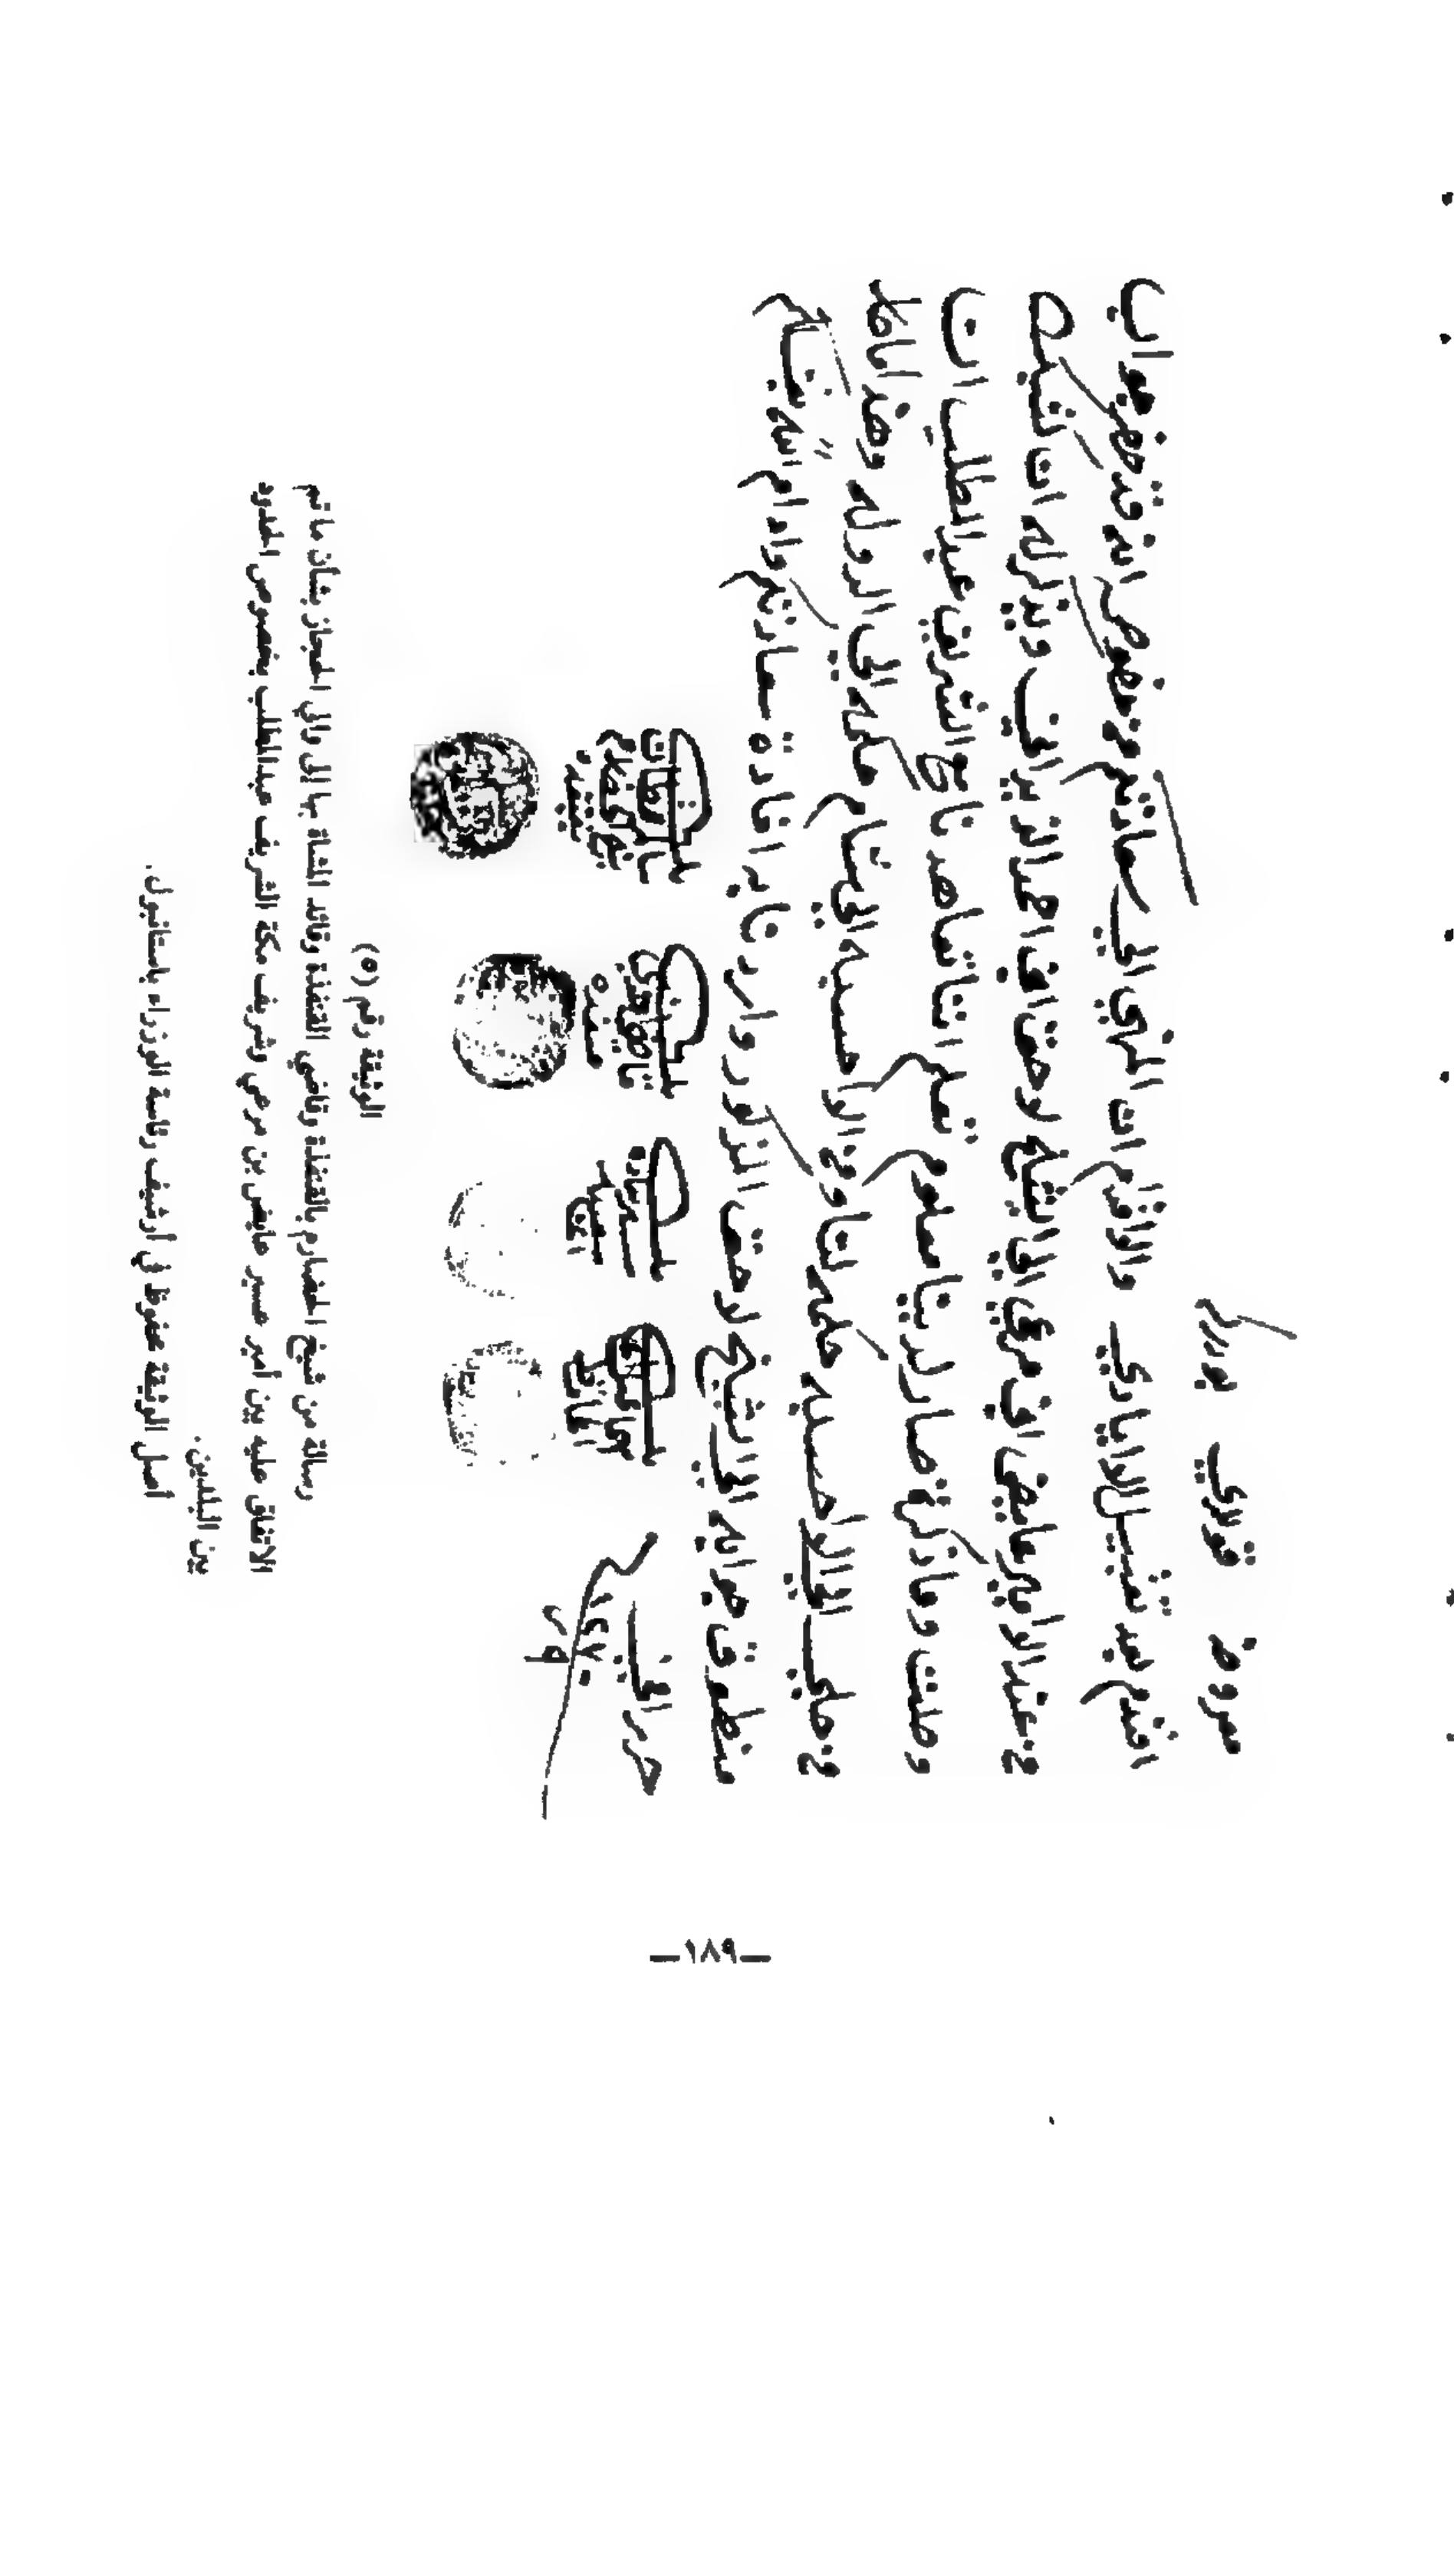 معروض قوللري بودركه
افندم بعد تقبيل الايادي والاقدام ان المنهي الي سعادتكم بخصوص انه قد حضر جواب
من عند الامير عايض ابن مرعي الي الشيخ لاحق ابن احمد الزبداني ويذكر له ان
وصلت وما ذكرة صار لدينا معلوم نعلم اننا تعاهدنا مع الشريف عبد المطلب ان
من حلي الي الاحسبه حكمه لنا ومن الاحسبه الي شام حكمه الي الدوله وهذا
منطوق جوابه الي الشيخ لاحق المذكور وارد نابه افادة سعادتكم ودام الله بقاكم
حرر في
١٢٧٠
بنده
بنده
الوثيقة رقم (٥)
رسالة من شيخ المخارم بالقنفذة وقاضي القنفذة وقائد المشاة بها الى والي الحجاز بشأن ما تم
الاتفاق عليه بين أمير عسير عايض بن مرعي وشريف مكة الشريف عبدالمطلب بخصوص الحدود
بين البلدين.
أصل الوثيقة محفوظ في أرشيف رئاسة الوزراء باستانبول.
—١٨٩—